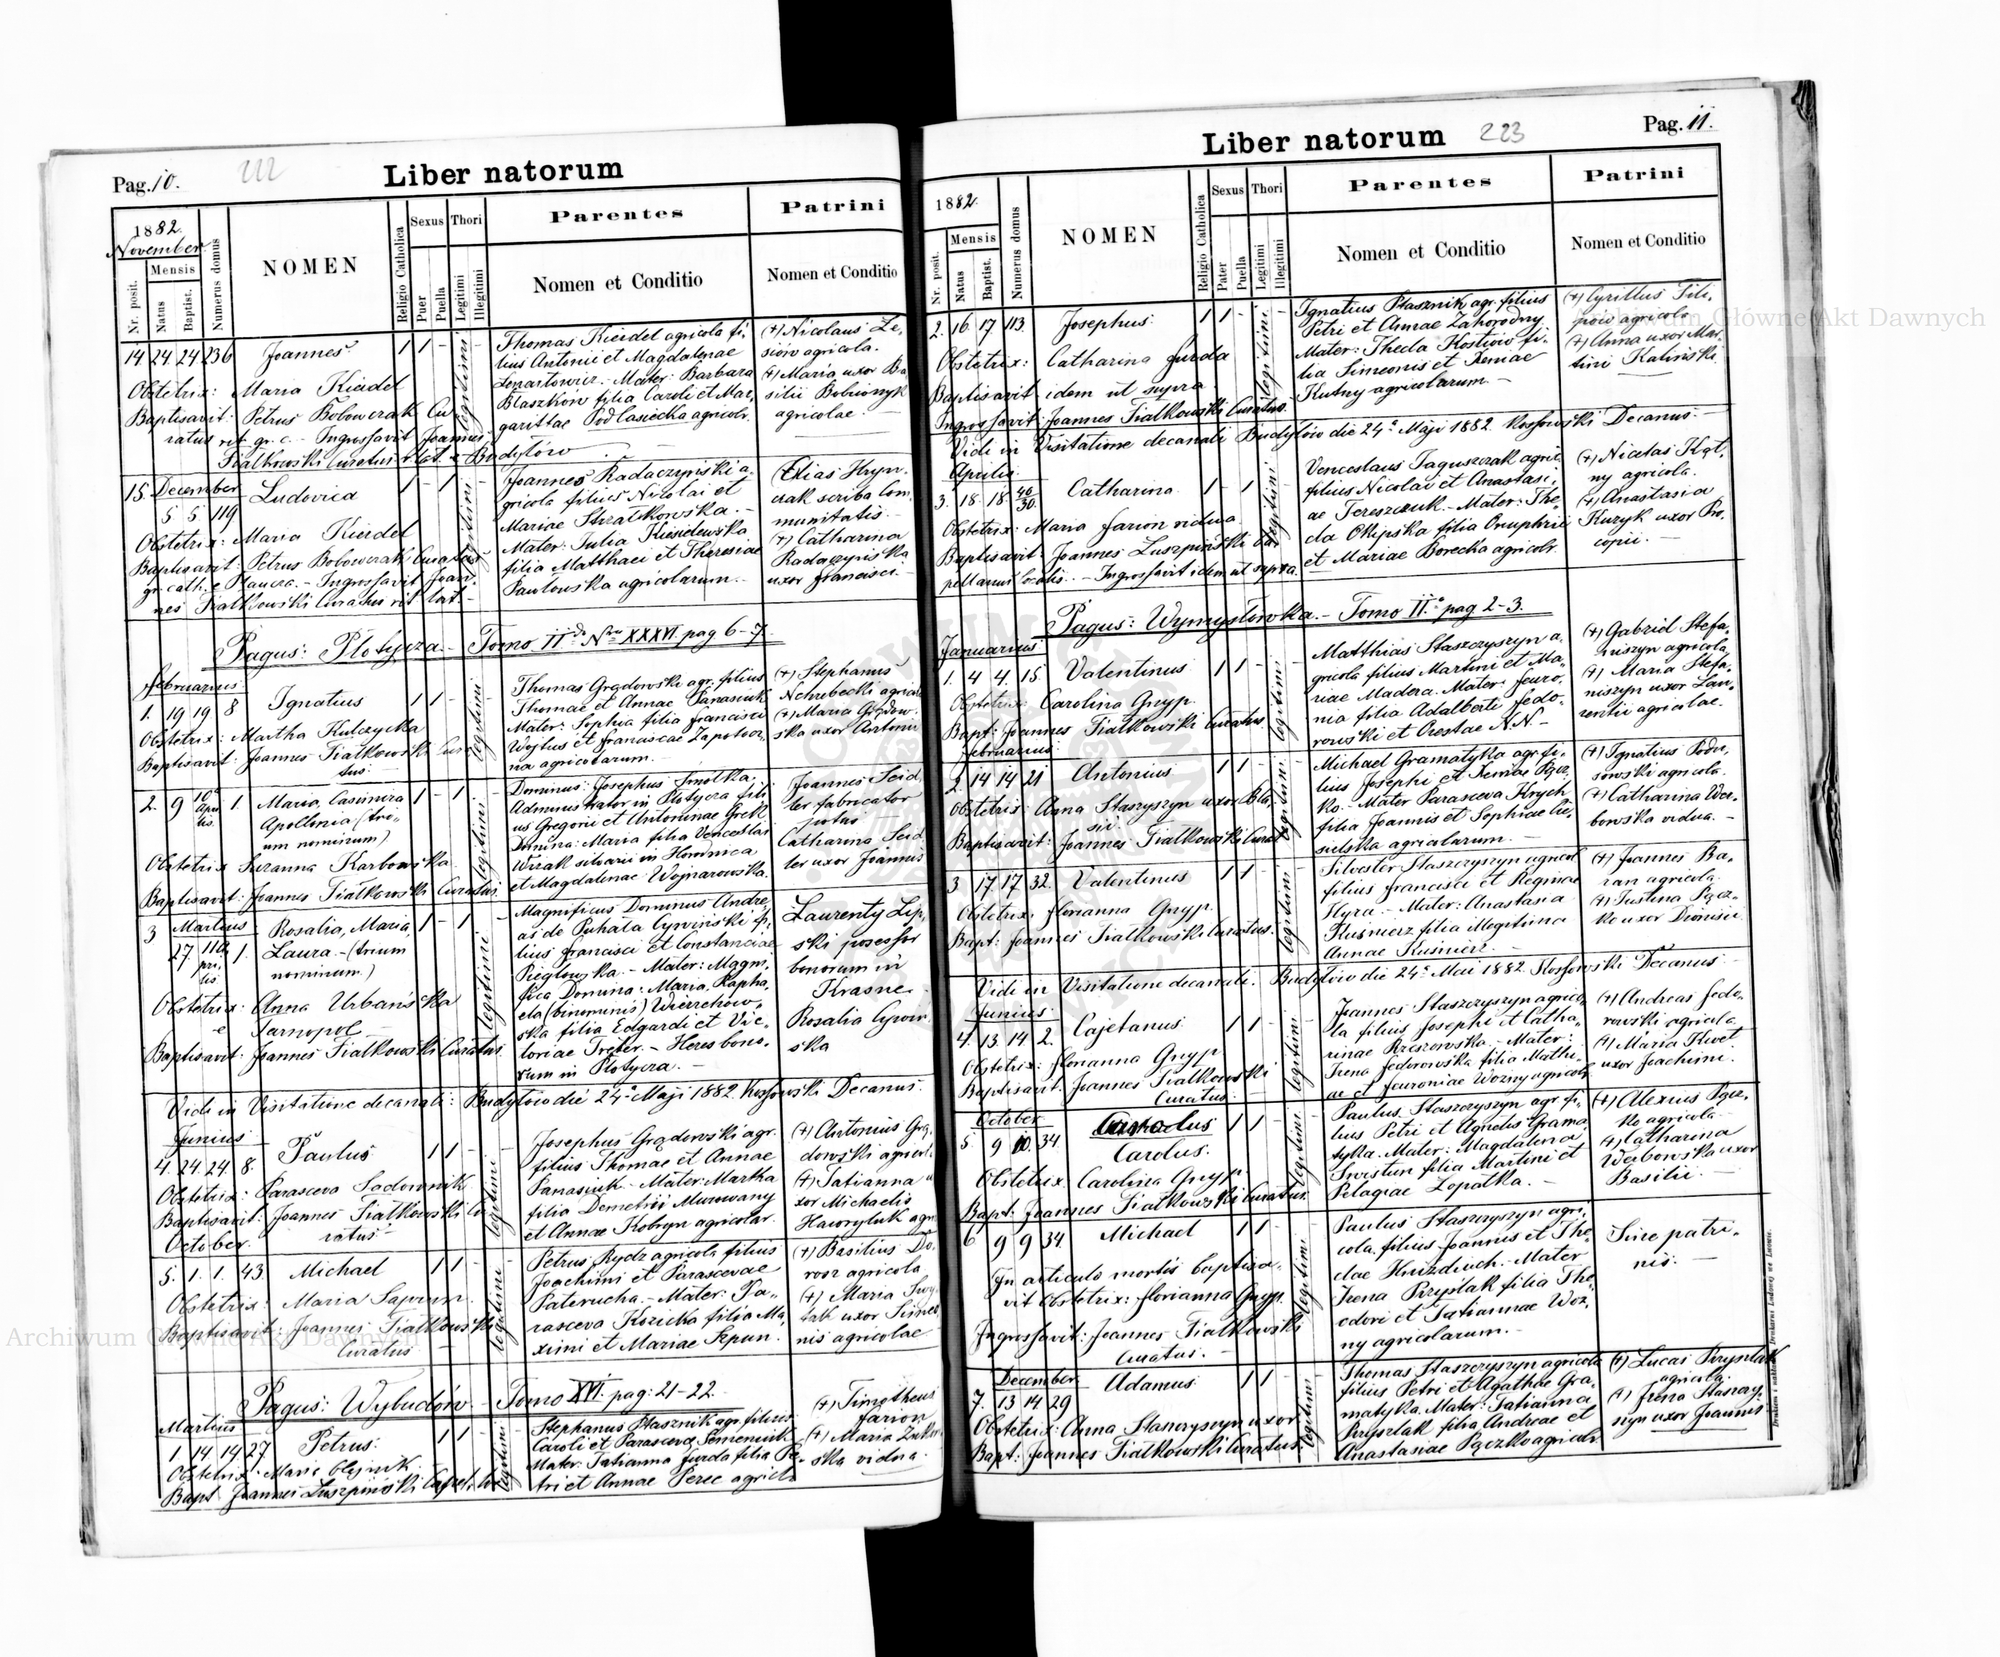 Pag. 10.
222
Liber natorum
1882.
November
Nr. posit.
Mensis
Natus
Baptist.
Numerus domus
NOMEN
Religio Catholica
Sexus
Puer
Puella
Thori
Legitimi
Illegitimi
Parentes
Nomen et Conditio
Patrini
Nomen et Conditio
14 24 24 236 Joannes 1 1 - legitimi
Obstetrix: Maria Kiedel
Baptisavit: Petrus Bobowczak Cu
ratus rit. gr. c. - Ingrossavit Joannes
Fialkowski Curatus r. lat. - Budylów
Thomas Kiedel agricola fi,
lius Antonii et Magdalenae
Lenartowicz. Mater: Barbara
Blaszkow filia Caroli et Mar,
garittae Podlasiecka agricolr.
(+) Nicolaus Le,
siów agricola.
(+) Maria uxor Ba
silii Bobiónyk
agricolae.
15. December Ludovica 1 - 1 legitimi
5 5 119
Obstetrix: Maria Kiedel
Baptisavit: Petrus Bobowczak Curatus
gr. cath. e Plaucza. - Ingrossavit Joan,
nes Fialkowski Curatus rit. lat. -
Joannes Radaczyński a,
gricola filius Nicolai et
Mariae Strzałkowska. -
Mater: Julia
filia Matthaei et Theresiae
Pawłowska agricolarum. -
Elias Hryn,
czak scriba Com,
munitatis. -
(+) Catharina
Radaczyńska
uxor Francisci. -
Pagus: Płotycza - Tomo II do Nro XXXVI. pag 6-7.
Februarius
1. 19 19 8 Ignatius 1 1 - legitimi
Obstetrix: Martha Kulczycka
Baptisavit: Joannes Fialkowski Cura
tus.
Thomas Grądowski agr. filius
Thomae et Annae Panasiuk
Mater: Sophia filia Francisci
Wojtus et Franciscae Zapotocz,
na agricolarum. -
(+) Stephanus
Nchrebecki agricola
(+) Maria Grądow,
ska uxor Antonii
2. 9 10a Apri lis. 1. Maria, Casimira 1 - 1 legitimi
Apollonia (tri,
um nominum)
Obstetrix Suzanna Karbowska
Baptisavit: Joannes Fialkowski Curatus.
Dominus: Josephus Smotka.
Administrator in Płotycza fili
us Gregorii et Antoninae Grek
Domina: Maria filia Venceslai
Wrzak silvarii in Horodnica
et Magdalenae Wojnarowska.
Joannes Seid,
ler fabricator
potus
Catharina Seid
ler uxor Joannis
3 Martius Rosalia, Maria, 1 - 1 legitimi
27 11a pri, lis 1. Laura. - (trium
nominum.)
Obstetrix: Anna Urbańska
e Tarnopol -
Baptisavit: Joannes Fialkowski Curatus.
Magnificus Dominus Andre,
as de Puhała Cywiński fi,
lius Francisci et Constanciae
Pieglowska. - Mater: Magni,
fica Domina: Maria, Rapha,
ela (binominis) Wierzchow,
ska filia Edgardi et Vic,
toriae Treter. - Heres bono,
rum in Płotycza. -
Laurenty Lip,
ski posessor
bonorum in
Krasne -
Rosalia Cywiń,
ska
Vidi in Visitatione decanali: Budylów die 24a Maji 1882. Kossowski Decanus.
Junius
4. 24 24 8. Paulus 1 1 - legitimi
Obstetrix: Parasceva Sadownik
Baptisavit: Joannes Fialkowski Cu
ratus
Josephus Grądowski agr.
filius Thomae et Annae
Panasiuk - Mater: Martha
filia Demetrii Murowany
et Annae Kobryn agricolar.
(+) Antonius Grą,
dowski agricola
(+) Tatianna u
xor Michaelis
Hawryluk agr.
October.
5. 1. 1. 43. Michael 1 1 legitimi
Obstetrix: Maria Saprun
Baptisavit: Joannes Fialkowski
Curatus
Petrus Rydz agricola filius
Joachimi et Parascevae
Paterucha. - Mater: Pa,
rasceva Kozicka filia Ma,
ximi et Mariae Szpun.
(+) Basilius Do,
rosz agricola
(+) Maria
uxor Simeo,
nis agricolae
Pagus: Wybudów - Tomo XVI. pag: 21-22.
Martius
1 14 14 27 Petrus. 1 1 - legitimi
Obstetrix: Maria Olejnik.
Bapt Joannes Łuszpiński Capel. loc
Stephanus Ptasznik agr. filius
Caroli et Parasceva Semeniuk
Mater: Tatianna Furda filia Pe,
tri et Annae Perec agricolr.
(+) Timotheus
Farion
(+) Maria
ska vidua.
Pag. 11.
223
Liber natorum
1882.
Nr. posit.
Mensis
Natus
Baptist.
Numerus domus
NOMEN
Religio Catholica
Sexus
Puer
Puella
Thori
Legitimi
Illegitimi
Parentes
Nomen et Conditio
Patrini
Nomen et Conditio
2. 16 17 113. Josephus. 1 1 - legitimi
Obstetrix: Catharina Furda
Baptisavit idem ut supra
Ingrossavit: Joannes Fialkowski Curatus.
Ignatius Ptasznik agr. filius
Petri et Annae Zahorodny
Mater: Thecla Kostiów fi,
lia Simeonis et Xeniae
Kutny agricolarum. -
(+) Cyrillus Fili,
pów agricola
(+) Anna uxor Mar
tini Kaliński
Vidi in Visitatione decanali Budylów die 24a Maji 1882. Kossowski Decanus. -
Aprilis
3. 18. 18. 40/30. Catharina. 1 - 1 - legitimi
Obstetrix: Maria Farion vidua
Baptisavit: Joannes Łuszpiński Ca,
pellanus localis. - Ingrossavit idem ut supra.
Venceslaus Jaguszczak agric.
filius Nicolai et Anastasi,
ae Tereszczuk. - Mater: The,
cla Okipska filia Onuphrii
et Mariae Borecka agricolr.
(+) Nicetas Kąt,
ny agricola.
(+) Anastasia
Kuzyk uxor Pro,
copii. -
Pagus: Wymysłówka. - Tomo II.o pag 2-3.
Januarius
1. 4 4. 15. Valentinus 1 1 - legitimi
Obstetrix: Carolina Gnyp.
Bapt: Joannes Fialkowski Curatus.
Matthias Staszczyszyn a,
gricola filius Martini et Ma,
riae Madera. Mater: Feuro,
nia filia Adalberti Fedo,
rowski et Orestae N.N. -
(+) Gabriel Stefa,
niszyn agricola,
(+) Maria Stefa,
niszyn uxor Lau,
rentii agricolae.
Februarius.
2. 14 14 21 Antonius 1 1 - legitimi
Obstetrix: Anna Staszyszyn uxor Bla,
sii
Baptisavit: Joannes Fialkowski Curat
Michael Gramatyka agr. fi,
lius Josephi et Xeniae Pącz,
ko. - Mater Parasceva Krych
filia Joannis et Sophiae Cie,
sielska agricolarum. -
(+) Ignatius Podu,
sowski agricola.
(+) Catharina Wer,
bowska vidua. -
3 17. 17 32. Valentinus 1 1 - legitimi
Obstetrix: Florianna Gnyp.
Bapt: Joannes Fialkowski Curatus.
Silvester Staszczyszyn agricol
filius Francisci et Reginae
Hyra. - Mater: Anastasia
Kuśnierz filia illegitima
Annae Kuśnierz. -
(+) Joannes Ba,
ran agricola.
(+) Justina Pącz,
ko uxor Dionisii
Vidi in Visitatione decanali. Budylów die 24a Mai 1882. Kossowski Decanus -
Junius.
4. 13. 14 2. Cajetanus. 1 1 - legitimi
Obstetrix: Florianna Gnyp
Baptisavit. Joannes Fialkowski
Curatus.
Joannes Staszczyszyn agrico,
la filius Josephi et Catha,
rinae Rzeszowska. - Mater:
Irena Fedorowska filia Mathi,
ae et Feuroniae Woźny agricolr
(+) Andreas Fedo,
rowski agricola.
(+) Maria Kwet
uxor Joachimi.
October
5. 9 10. 34. Carolus 1 1 - legitimi
Carolus.
Obstetrix. Carolina Gnyp.
Bapt: Joannes Fialkowski Curatus.
Paulus Staszczyszyn agr. fi,
lius Petri et Agnetis Grama,
tyka. Mater: Magdalena
Swistun filia Martini et
Pelagiae Łopatka. -
(+) Alexius Pącz,
ko agricola. -
(+) Catharina
Werbowska uxor
Basilii. -
6 9 9 34. Michael 1 1 - legitimi
In articulo mortis baptisa,
vit Obstetrix: Florianna Gnyp.
Ingrossavit: Joannes Fialkowski
Curatus. -
Paulus Staszczyszyn agri,
cola filius Joannis et The,
clae Hnizdiuch. - Mater
Irena Przyslak filia The,
odori et Tatiannae Woź,
ny agricolarum. -
Sine patri,
nis. -
December
7. 13 14 29 Adamus. 1 1 - legitimi
Obstetrix: Anna Stanczyszyn uxor
Bapt: Joannes Fialkowski Curatus.
Thomas Staszczyszyn agricola
filius Petri et Agathae Gra,
matyka. Mater: Tatianna
Przyslak filia Andreae et
Anastasiae Pączko agricolr.
(+) Lucas Przyslak
agricola.
(+) Irena Stanczy,
szyn uxor Joannis
Drukiem i nakładem Drukarni Ludowej we Lwowie.
Archiwum Główne Akt Dawnych
Archiwum Główne Akt Dawnych